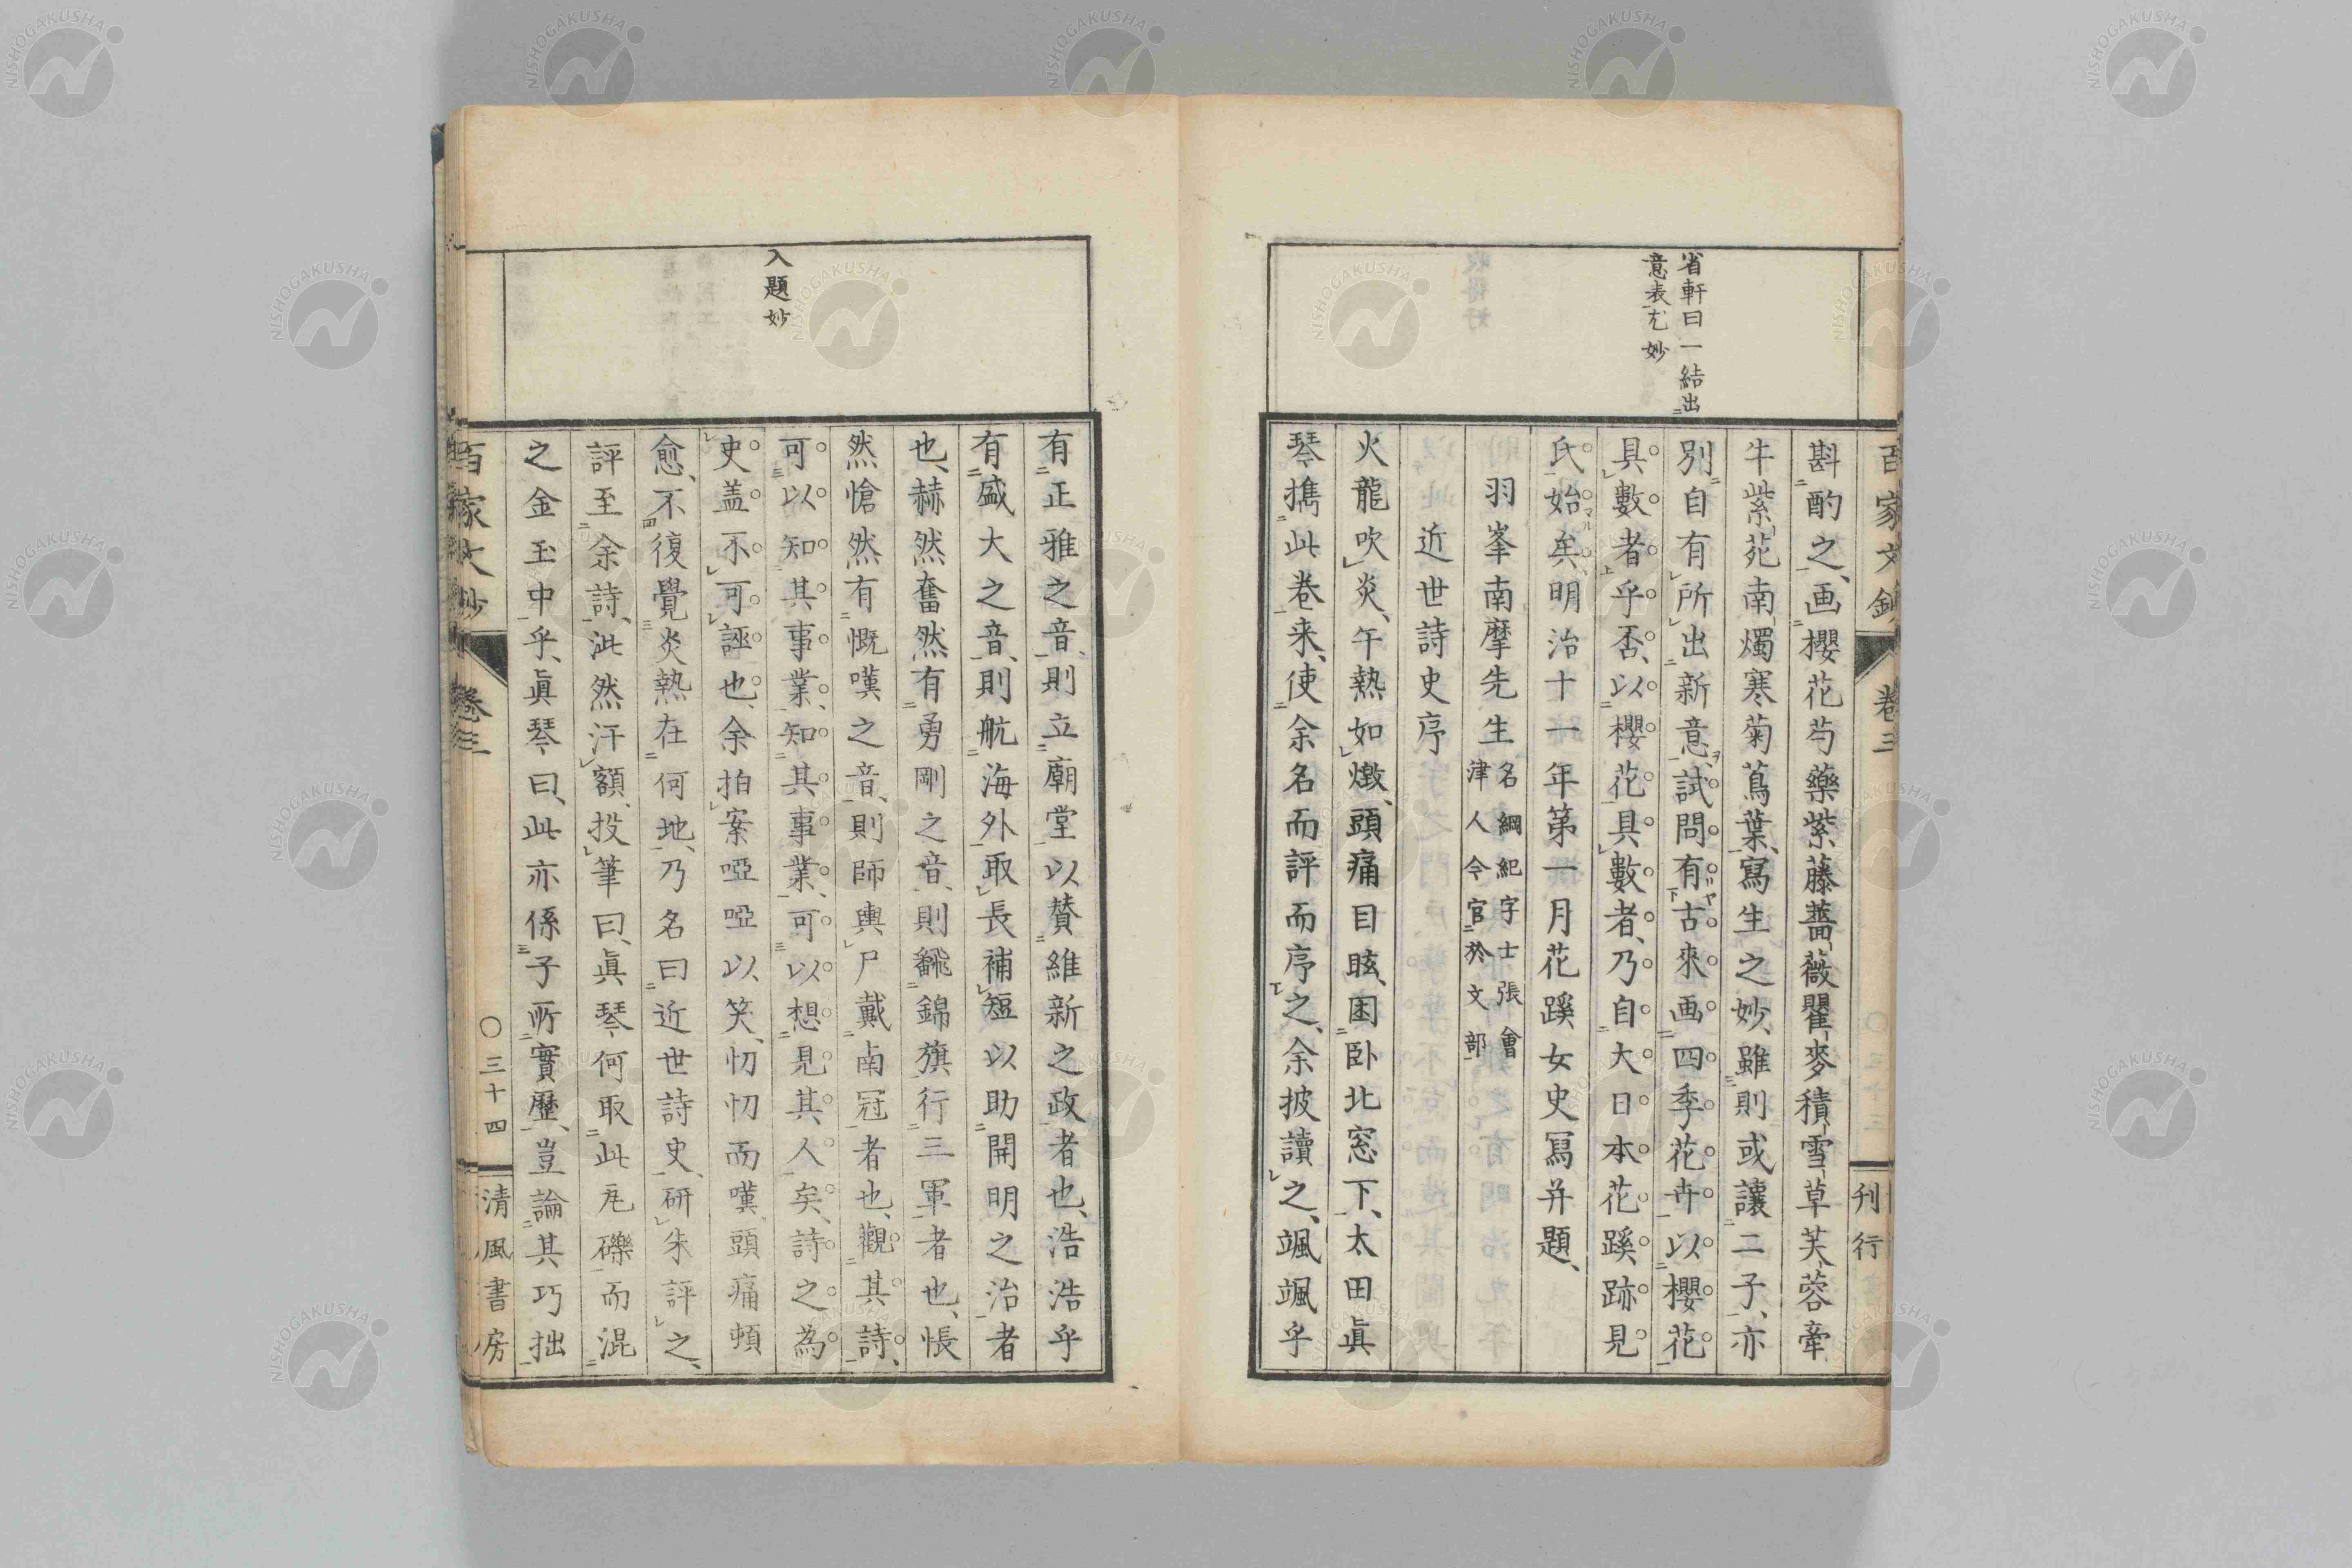 百家文鈔
卷三
刊行
省軒曰一結出
意表尤妙
斟酌之、画櫻花芍藥紫藤薔薇瞿麥積雪草芙蓉牽
牛紫菀南燭寒菊蔦葉、寫生之妙、雖則或讓二子、亦
別自有所出新意、試問有古來画四季花卉以櫻花
具數者乎否、以櫻花具數者、乃自大日本花蹊跡見
氏始矣明治十一年第一月花蹊女史冩并題、
羽峯南摩先生
名綱紀字士張會
津人今官於文部
近世詩史序
火龍吹炎、午熱如燬、頭痛目眩、困卧北窓下、太田眞
琴、擕此卷来、使余名而評而序之、余披讀之、颯颯乎
入題妙
有正雅之音、則立廟堂以賛維新之政者也、浩浩乎
有盛大之音、則航海外取長補短以助開明之治者
也、赫然奮然有勇剛之音、則飜錦旗行三軍者也、悵
然愴然有慨嘆之音、則師輿尸戴南冠者也、觀其詩、
可以知其事業、知其事業、可以想見其人矣、詩之為
史盖不可誣也、余拍案啞啞以笑、忉忉而嘆、頭痛頓
愈、不復覺炎熱在何地、乃名曰近世詩史、研朱評之、
評至余詩、泚然汗額、投筆曰、眞琴、何取此瓦礫而混
之金玉中乎、眞琴曰、此亦係子所實歷、豈論其巧拙
百家文鈔
卷三
〇三十四
清風書房
NISHOGAKUSHA